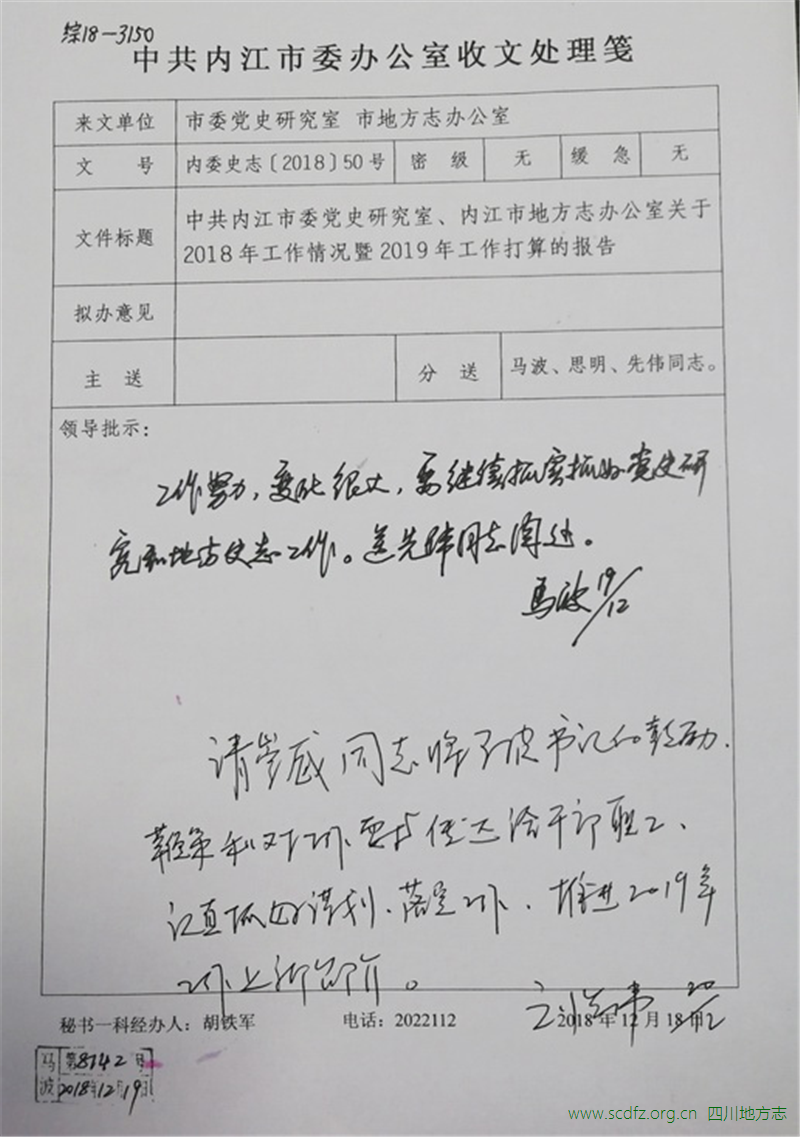 综18-3150
中共内江市委办公室收文处理笺
来文单位 市委党史研究室 市地方志办公室
文 号 内委史志〔2018〕50号 密 级 无 缓 急 无
文件标题 中共内江市委党史研究室、内江市地方志办公室关于
2018年工作情况暨2019年工作打算的报告
拟办意见
主 送 分 送 马波、思明、先伟同志。
领导批示：
工作努力，变化很大，需继续抓实抓好党史研
究和地方史志工作。送先伟同志阅处。
马波 19/12
请 同志将马波书记的鼓励、
鞭策和对工作要求传达给干部职工、
认真抓好谋划、落实工作、推进2019年
工作上新台阶。
20/12
秘书一科经办人：胡铁军 电话：2022112 2018年12月18日
马波 第8742号
2018年12月19日
www.scdfz.org.cn 四川地方志